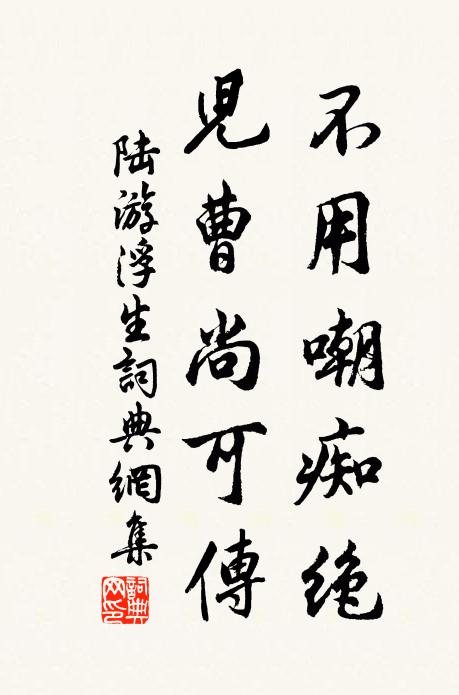 不用嘲痴绝
児曹尚可傳
陆游浮生詞典網集
詞典网印